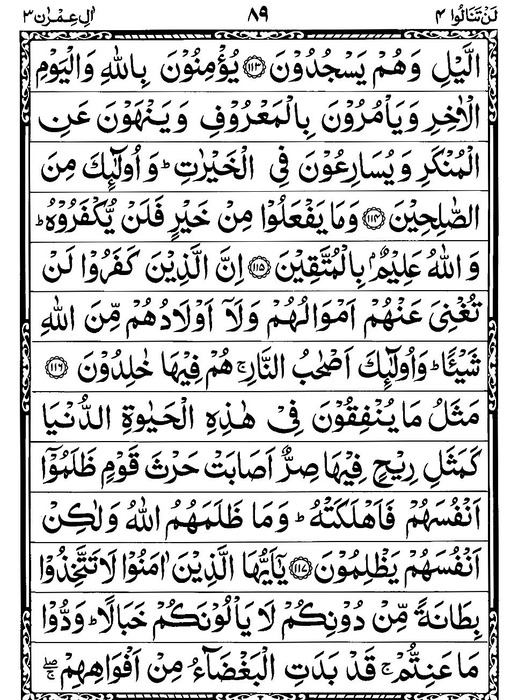 لَنْ تَنَالُوا ۴ ۸۹ اٰلِ عِمْرٰن ۳
الَّيْلِ وَهُمْ يَسْجُدُوْنَ ﴿۱۱۳﴾ يُؤْمِنُوْنَ بِاللّٰهِ وَالْيَوْمِ
الْاٰخِرِ وَيَاْمُرُوْنَ بِالْمَعْرُوْفِ وَيَنْهَوْنَ عَنِ
الْمُنْكَرِ وَيُسَارِعُوْنَ فِي الْخَيْرٰتِ ؕ وَاُولٰٓئِكَ مِنَ
الصّٰلِحِيْنَ ﴿۱۱۴﴾ وَمَا يَفْعَلُوْا مِنْ خَيْرٍ فَلَنْ يُّكْفَرُوْهُ ؕ
وَاللّٰهُ عَلِيْمٌۢ بِالْمُتَّقِيْنَ ﴿۱۱۵﴾ اِنَّ الَّذِيْنَ كَفَرُوْا لَنْ
تُغْنِيَ عَنْهُمْ اَمْوَالُهُمْ وَلَاۤ اَوْلَادُهُمْ مِّنَ اللّٰهِ
شَيْـًٔا ؕ وَاُولٰٓئِكَ اَصْحٰبُ النَّارِ ۚ هُمْ فِيْهَا خٰلِدُوْنَ ﴿۱۱۶﴾
مَثَلُ مَا يُنْفِقُوْنَ فِيْ هٰذِهِ الْحَيٰوةِ الدُّنْيَا
كَمَثَلِ رِيْحٍ فِيْهَا صِرٌّ اَصَابَتْ حَرْثَ قَوْمٍ ظَلَمُوْۤا
اَنْفُسَهُمْ فَاَهْلَكَتْهُ ؕ وَمَا ظَلَمَهُمُ اللّٰهُ وَلٰكِنْ
اَنْفُسَهُمْ يَظْلِمُوْنَ ﴿۱۱۷﴾ يٰۤاَيُّهَا الَّذِيْنَ اٰمَنُوْا لَا تَتَّخِذُوْا
بِطَانَةً مِّنْ دُوْنِكُمْ لَا يَاْلُوْنَكُمْ خَبَالًا ؕ وَدُّوْا
مَا عَنِتُّمْ ۚ قَدْ بَدَتِ الْبَغْضَآءُ مِنْ اَفْوَاهِهِمْ ۖۚ